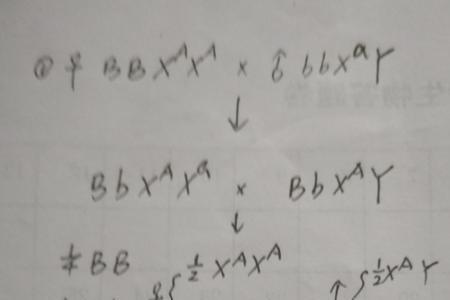 ① ♀ BBXᴬXᴬ × ♂ bbXᵃY
↓
BbXᴬXᵃ × BbXᴬY
↓
BB { 1/2 XᴬXᴬ { 1/2 XᴬY